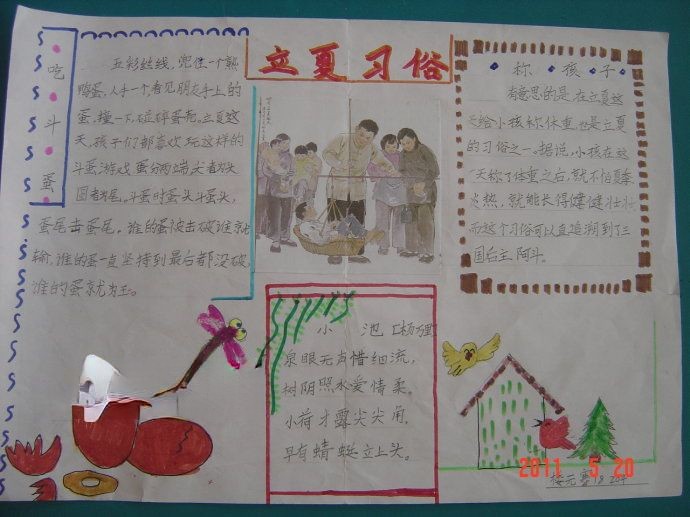 立夏习俗
吃斗蛋
五彩丝线，兜住一个熟
鸭蛋，人手一个，看见朋友手上的
蛋，撞一下，碰碎蛋壳。立夏这
天，孩子们都喜欢玩这样的
斗蛋游戏。蛋分两端，尖者为头
圆者为尾。斗蛋时蛋头斗蛋头，
蛋尾击蛋尾。谁的蛋被击破谁就
输，谁的蛋一直坚持到最后都没破，
谁的蛋就为王。
称孩子
有意思的是，在立夏这
天给小孩称体重，也是立夏
的习俗之一。据说，小孩在这
一天称了体重之后，就不怕夏季
炎热，就能长得健健壮壮
而这个习俗可以直追溯到了三
国后主阿斗。
小池 [杨理]
泉眼无声惜细流，
树阴照水爱情柔。
小荷才露尖尖角，
早有蜻蜓立上头。
2011 5 20